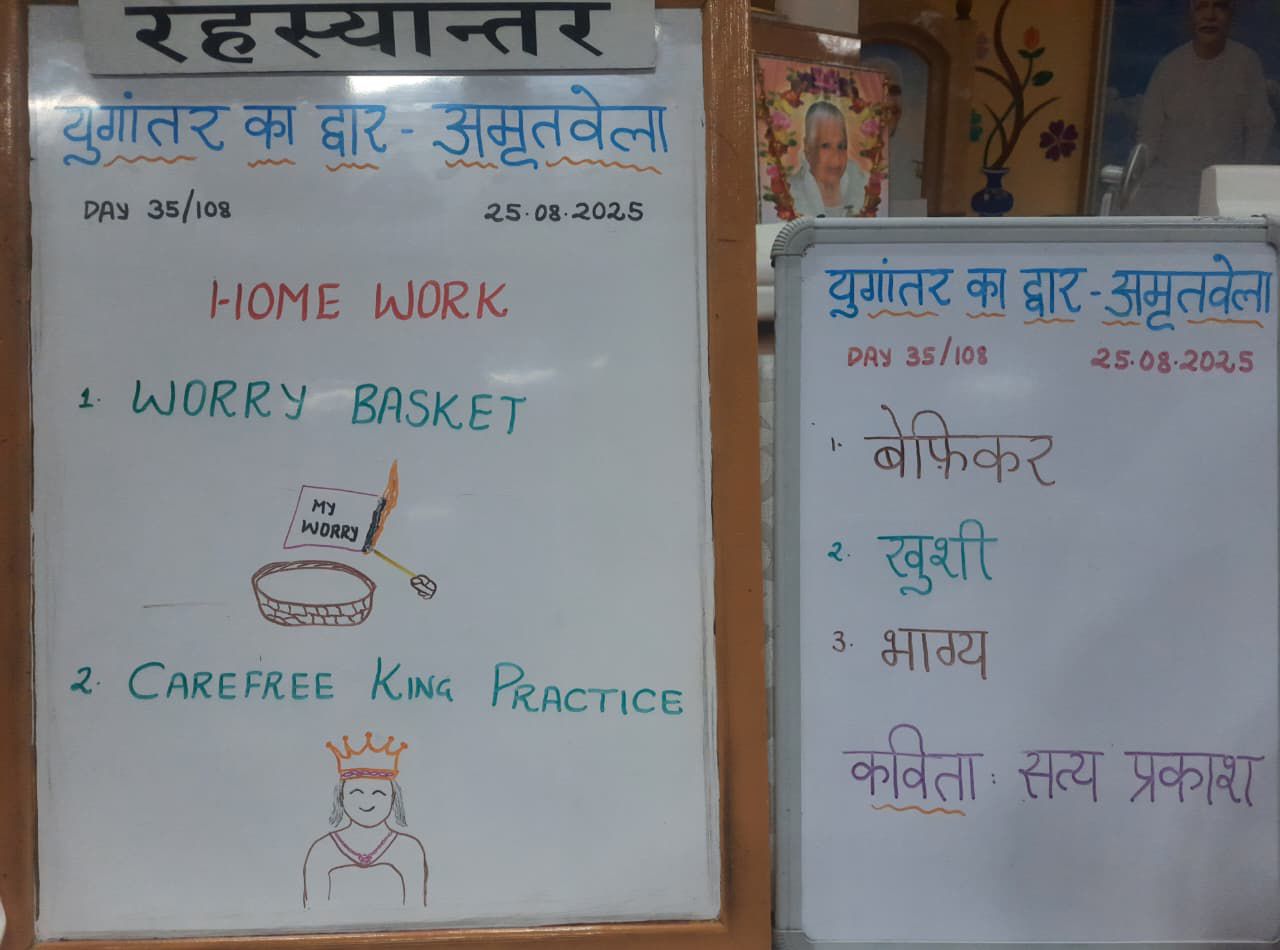 रहस्यान्तर
युगांतर का द्वार - अमृतवेला
DAY 35/108 25.08.2025
HOME WORK
1. WORRY BASKET
MY
WORRY
2. CAREFREE KING PRACTICE
युगांतर का द्वार - अमृतवेला
DAY 35/108 25.08.2025
1. बेफ़िकर
2. खुशी
3. भाग्य
कविता : सत्य प्रकाश